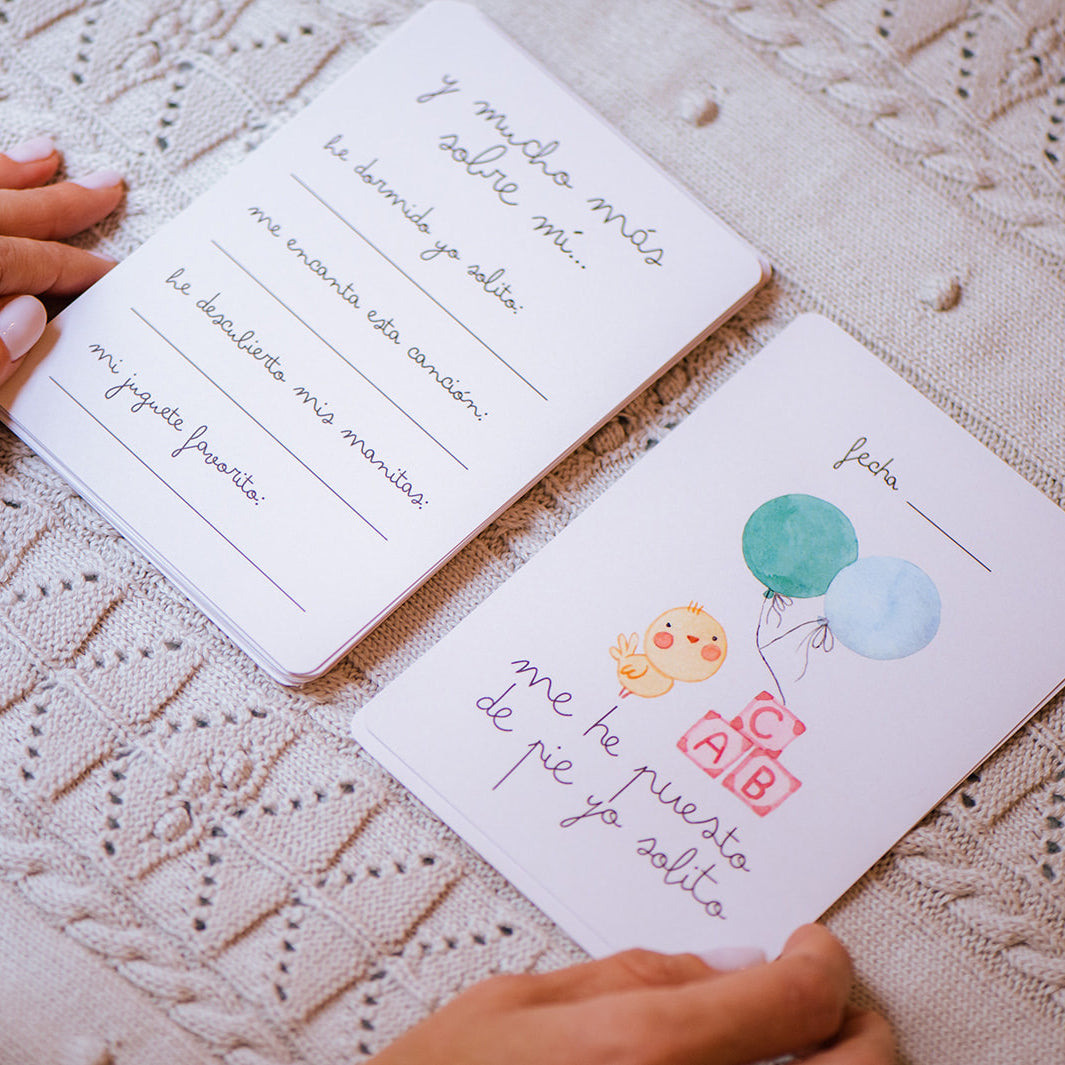 y mucho más
sobre mí...
he dormido yo solito:
me encanta esta canción:
he descubierto mis manitas:
mi juguete favorito:
fecha
C
A B
me he puesto
de pie yo solito